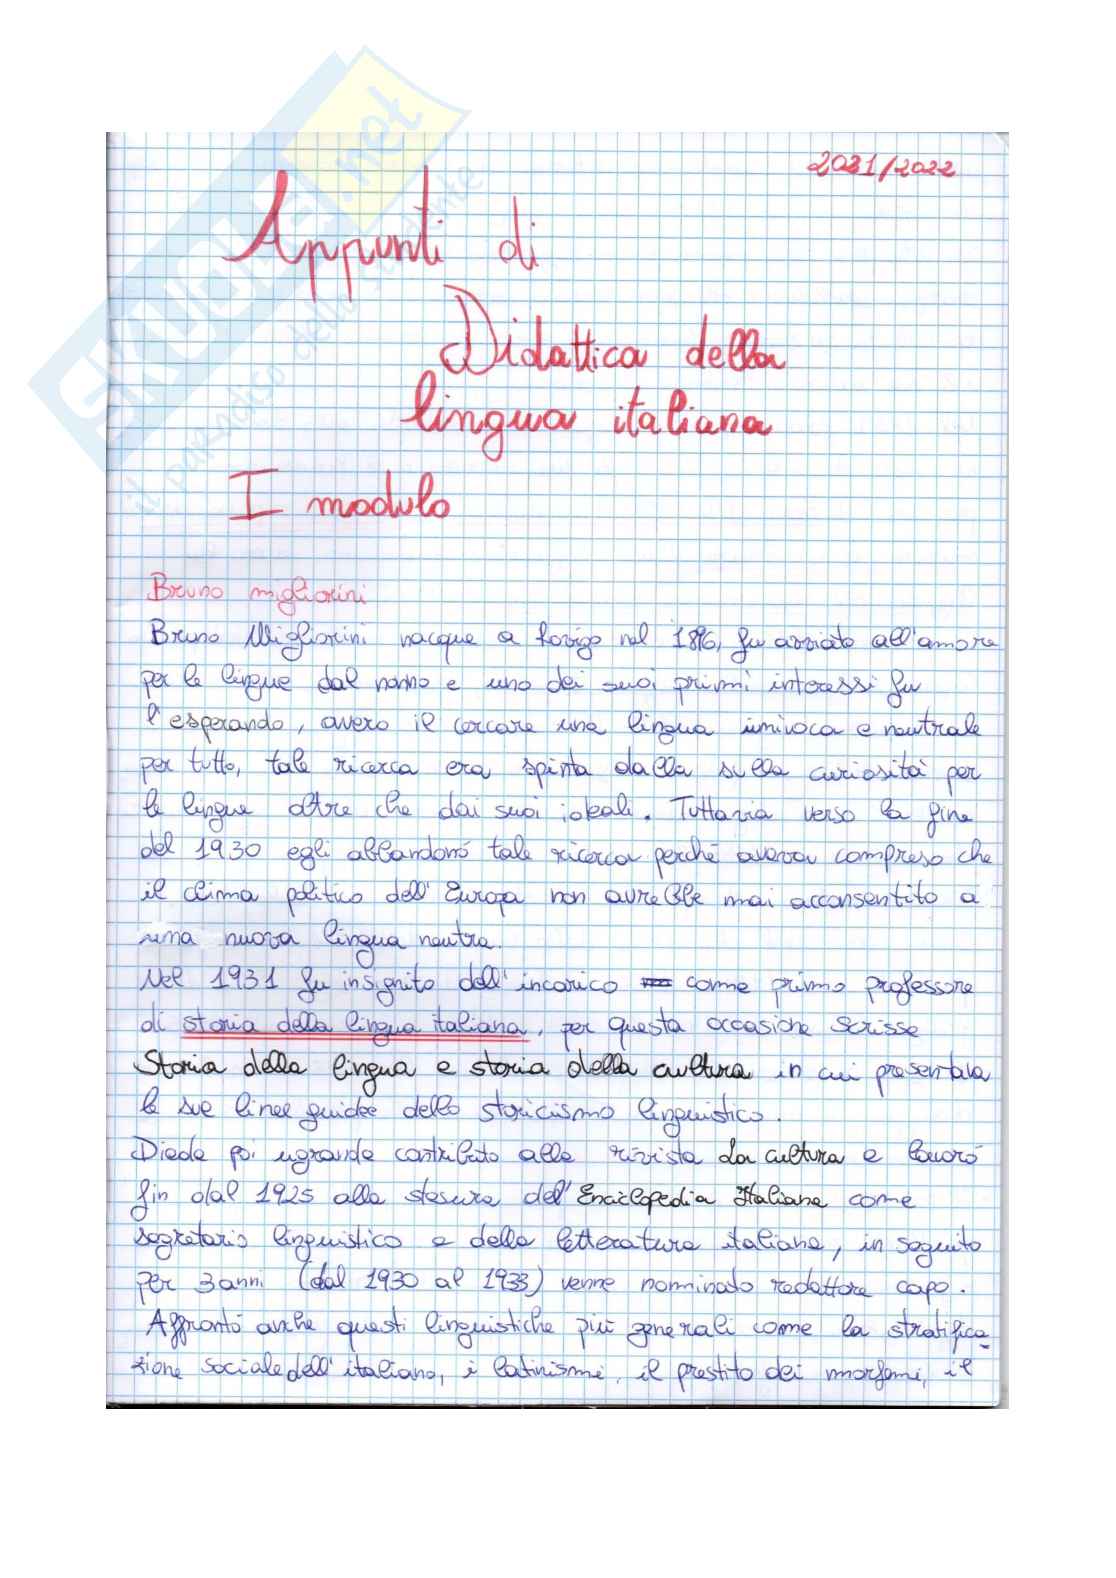 SKUOLA.net
il paradiso dello studente
2021/2022
Appunti di
Didattica della
lingua italiana
I modulo
Bruno migliorini
Bruno Migliorini nacque a Rovigo nel 1896, fu avviato all'amore
per le lingue dal nonno e uno dei suoi primi interessi fu
l'esperando, avero il cercare una lingua univoca e neutrale
per tutto, tale ricerca era spinta dalla sulla curiosità per
le lingue oltre che dai suoi ideali. Tuttavia verso la fine
del 1930 egli abbandonò tale ricerca perchè aveva compreso che
il clima politico dell'Europa non avrebbe mai acconsentito a
una nuova lingua neutra.
Nel 1931 fu insignito dell'incarico come primo professore
di storia della lingua italiana, per questa occasione scrisse
Storia della lingua e storia della cultura in cui presentava
le sue linee guidee dello storicismo linguistico.
Diede poi ugrande contributo alla rivista La cultura e lavorò
fin dal 1925 alla stesura del'Enciclopedia Italiana come
segretario linguistico e della letteratura italiana, in seguito
per 3 anni (dal 1930 al 1933) venne nominato redattore capo.
Affrontò anche questi linguistiche più generali come la stratifica-
zione sociale dell'italiano, i latinismi, il prestito dei morfemi, il